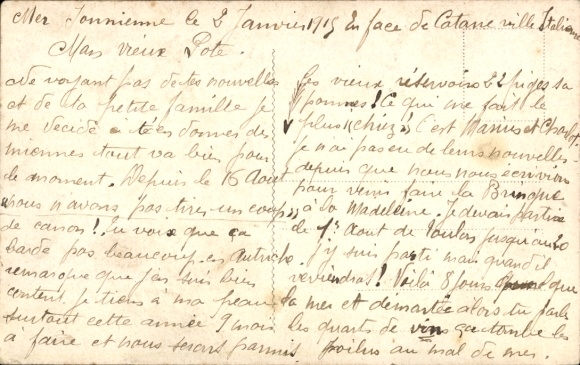 Mer Ionnienne le 2 Janvier 1915 En face de Catane ville Italienne
Mon vieux Pote.
Ne voyant pas de tes nouvelles
et de ta petite famille je
me décide a tes donner des
miennes tout va bien pour
le moment. Depuis le 16 Aout
nous n'avons pas tirés un coup
de canon! Tu vois que ça
barde pas beaucoup en Autriche
remarque que j'en suis bien
content, je tiens à ma peau
surtout cette année 9 mois
à faire et nous serons parmis
les vieux réservoirs 22 piges sa
pommes! Ce qui me fait le
plus "chiez" C'est Marius et Charlot
je n'ai pas eu de leurs nouvelles
depuis que nous nous écrivions
pour venir faire la Bringue
à la Madeleine. Je devais partir
le 1er Aout de Toulon jusqu'au 20
j'y suis parti mais quand il
reviendrat! Voilà 8 jours que
la mer et demartée alors tu parle
les quarts de vin ça tombe les
poilus au mal de mer.